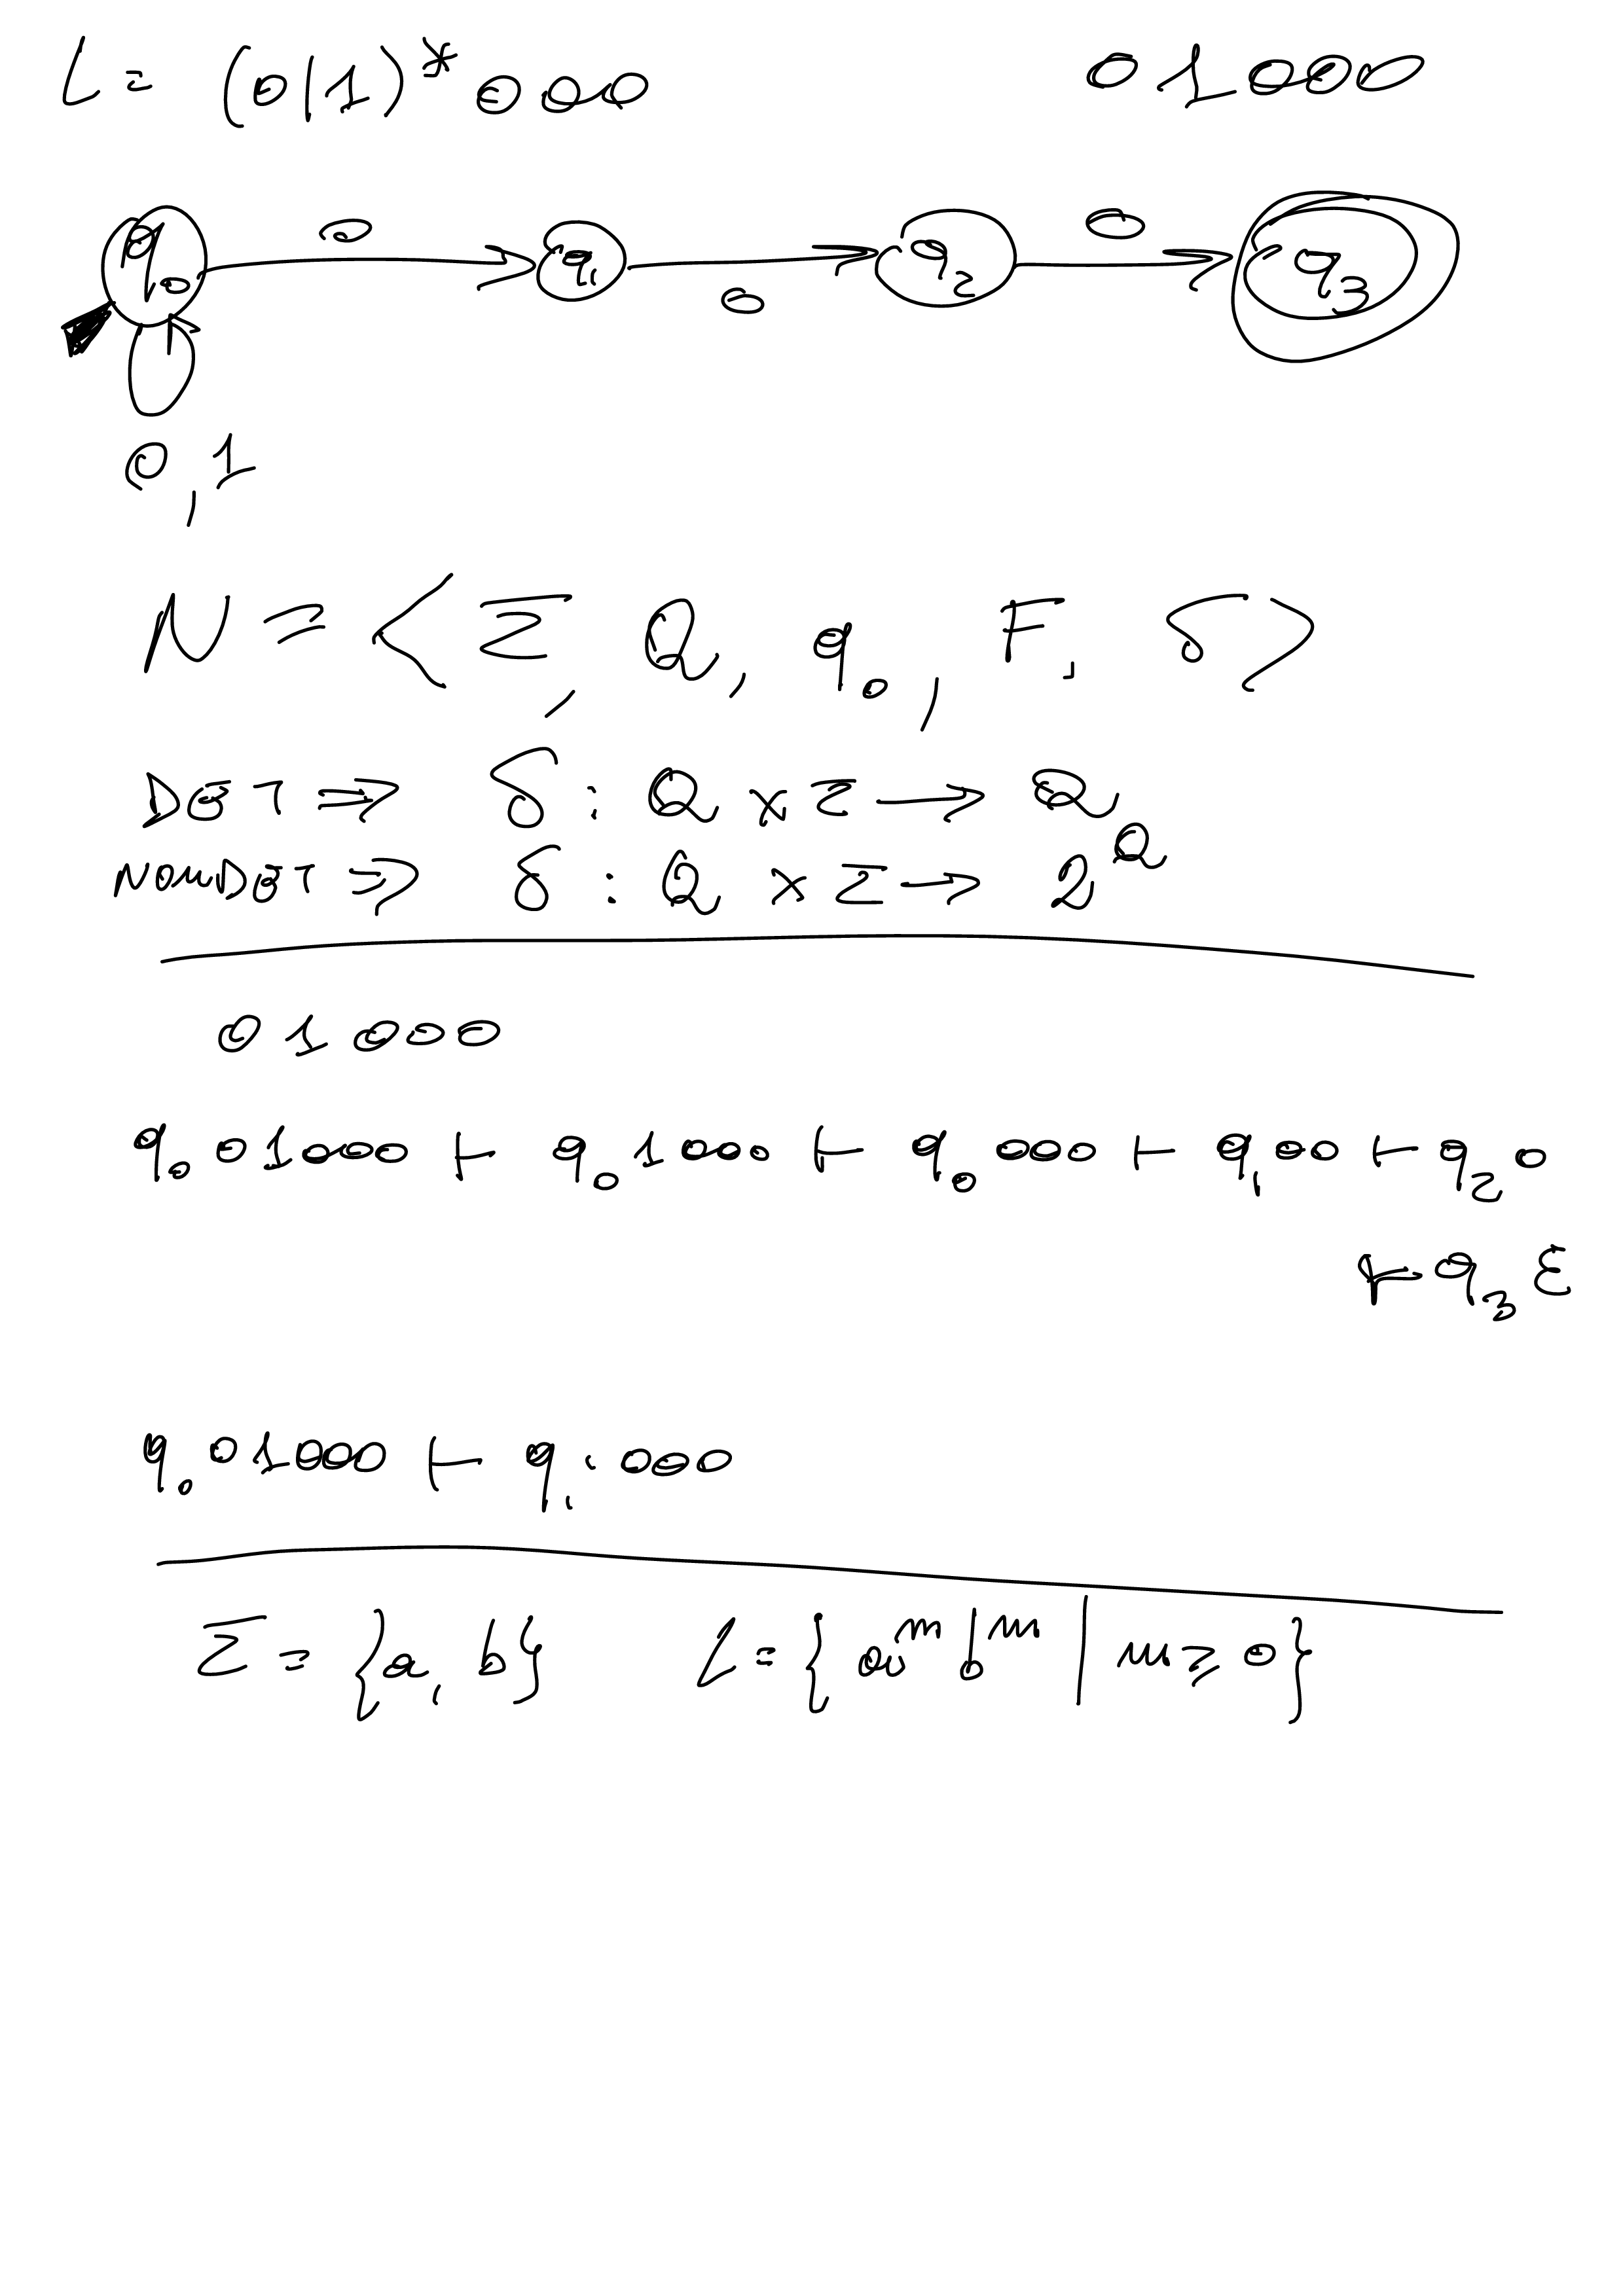 L = (0|1)* 000    01000
0    0    0
q₀    q₁    q₂    q₃
0,1
N = < Σ, Q, q₀, F, δ >
DET ⇒ δ : Q × Σ → Q
NONDET ⇒ δ : Q × Σ → 2^Q
01000
q₀ 01000 ⊢ q₀ 1000 ⊢ q₀ 000 ⊢ q₁ 00 ⊢ q₂ 0
⊢ q₃ ε
q₀ 01000 ⊢ q₁ 000
Σ = {a, b}    L = {aⁿ bⁿ | n ≥ 0}